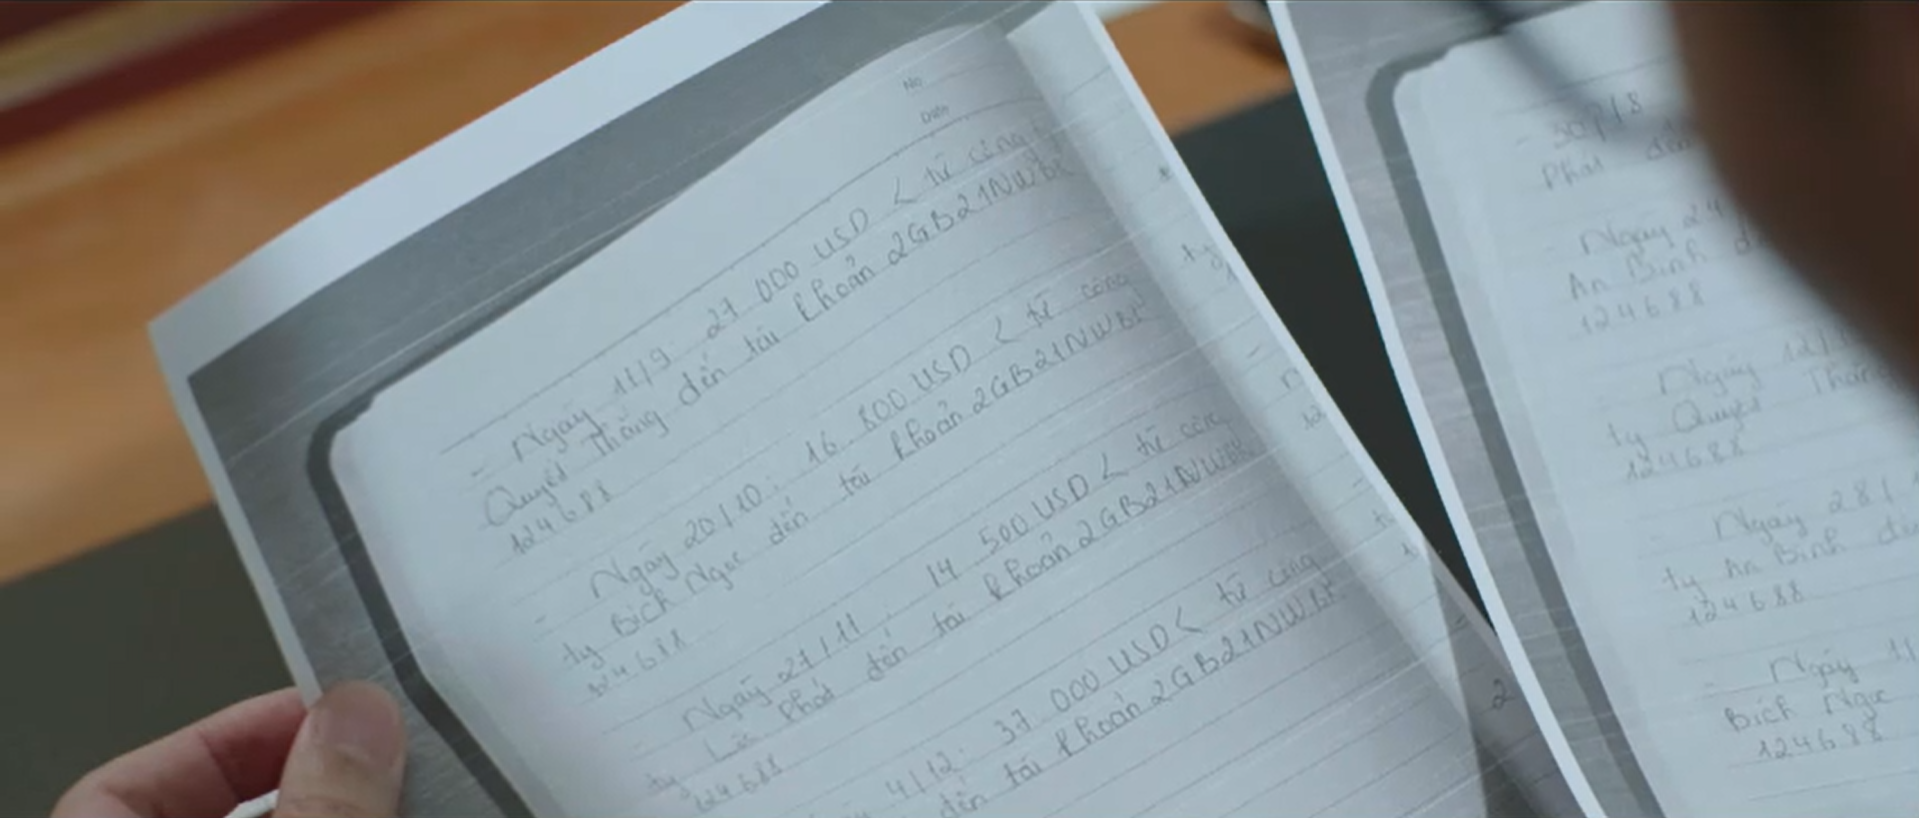 No
Date
- Ngày 11/9: 27 000 USD < từ công
Quyết Thắng đến tài khoản 2GB21NWBK
124688
- Ngày 20/10: 16 800 USD < từ công
ty Bích Ngọc đến tài khoản 2GB21NWBK
124688
- Ngày 27/11: 14 500 USD < từ công
ty Lộc Phát đến tài khoản 2GB21NWBK
124688
4/12: 37 000 USD < từ công
đến tài khoản 2GB21NWBK
ty
2
Phát đến
Ngày 24
An Bình
124688
Ngày 12/
ty Quyết Thắng
124688
- Ngày 28/
ty An Bình
124688
- Ngày 11/
Bích Ngọc
124688